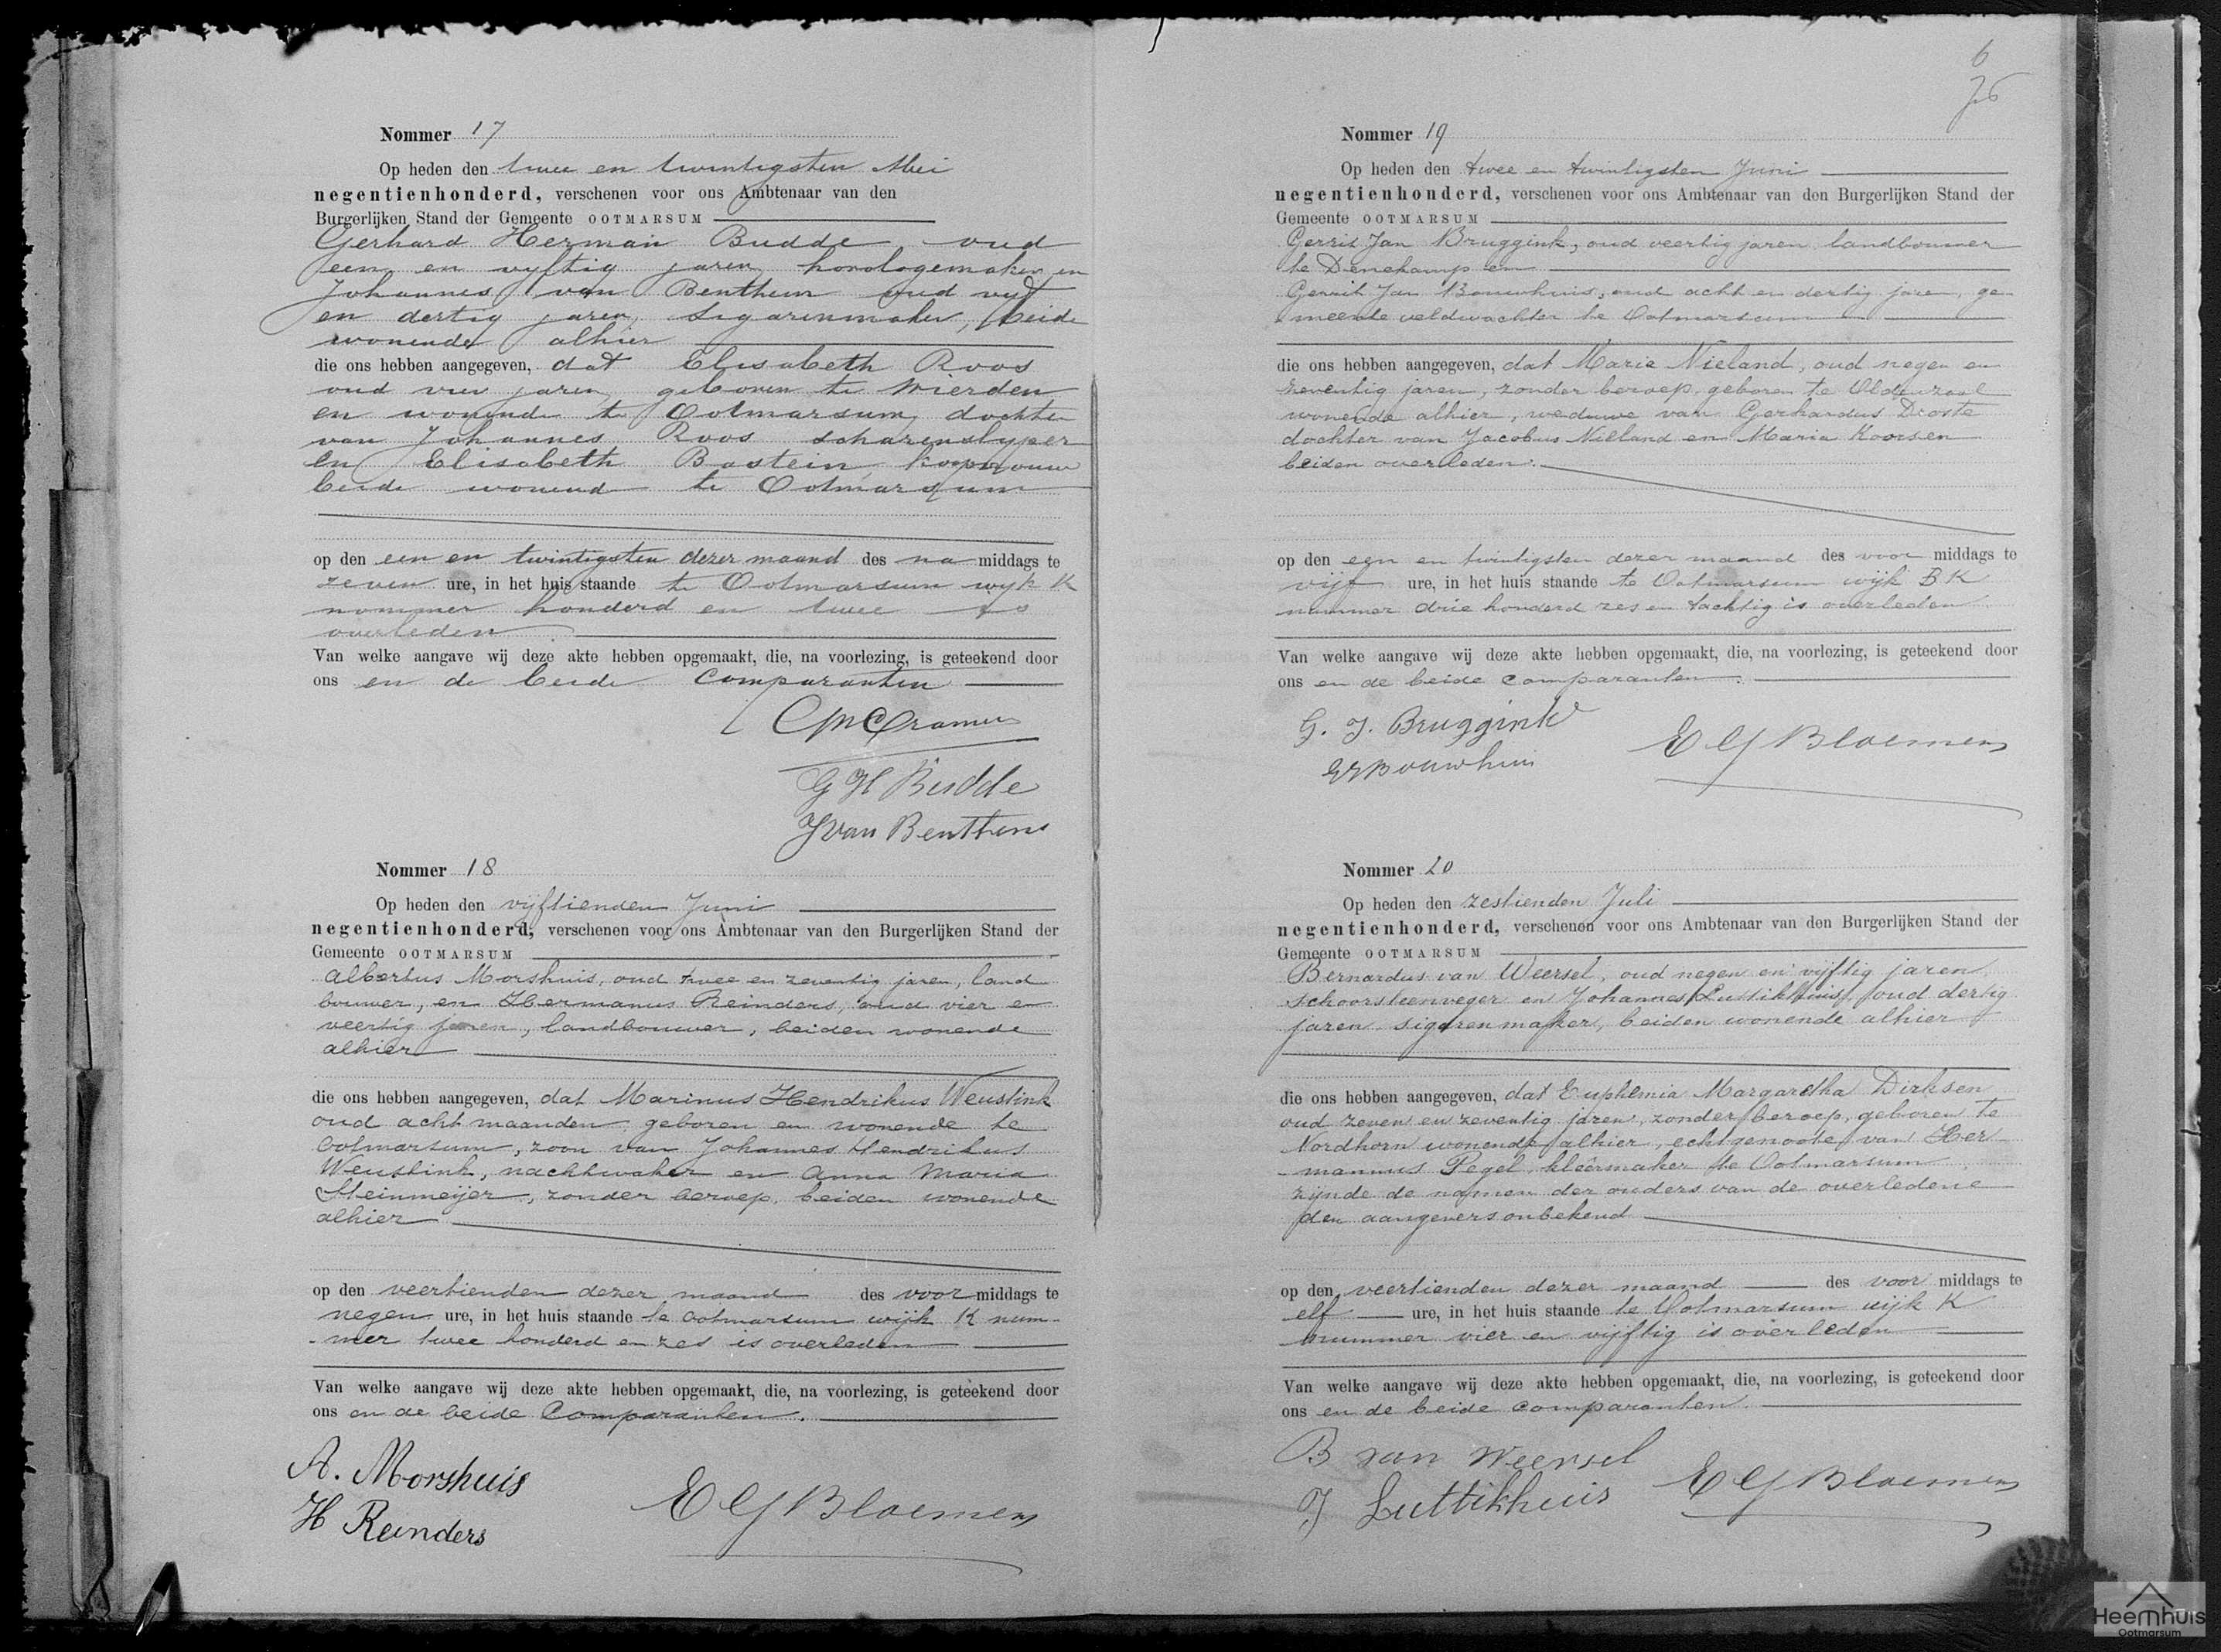 Nommer 17
Op heden den twee en twintigsten Mei
negentienhonderd, verschenen voor ons Ambtenaar van den
Burgerlijken Stand der Gemeente OOTMARSUM
Gerhard Herman Budde, oud
een en vyftig jaren, horologemaker en
Johannes van Benthem oud vyf
en dertig jaren, sigarenmaker, beide
wonende alhier
die ons hebben aangegeven, dat Elisabeth Roos
oud vier jaren, geboren te Wierden
en wonende te Ootmarsum, dochter
van Johannes Roos scharenslyper
en Elisabeth Bastein, koopvrouw
beide wonende te Ootmarsum
op den een en twintigsten dezer maand des na middags te
zeven ure, in het huis staande te Ootmarsum wyk K
nommer honderd en twee is
overleden
Van welke aangave wij deze akte hebben opgemaakt, die, na voorlezing, is geteekend door
ons en de beide Comparanten
Cramer
G H Budde
J van Benthem
Nommer 18
Op heden den vijftienden Juni
negentienhonderd, verschenen voor ons Ambtenaar van den Burgerlijken Stand der
Gemeente OOTMARSUM
Albertus Morshuis, oud twee en zeventig jaren, land
bouwer, en Hermanus Reinders, oud vier en
veertig jaren, landbouwer, beiden wonende
alhier
die ons hebben aangegeven, dat Marinus Hendrikus Weustink
oud acht maanden, geboren en wonende te
Ootmarsum, zoon van Johannes Hendrikus
Weustink, nachtwaker en Anna Maria
Steinmeijer, zonder beroep, beiden wonende
alhier
op den veertienden dezer maand des voor middags te
negen ure, in het huis staande te Ootmarsum wijk K num-
-mer twee honderd en zes is overleden
Van welke aangave wij deze akte hebben opgemaakt, die, na voorlezing, is geteekend door
ons en de beide Comparanten.
A. Morshuis
H Reinders
E G Bloemen
6
76
Nommer 19
Op heden den twee en twintigsten Juni
negentienhonderd, verschenen voor ons Ambtenaar van den Burgerlijken Stand der
Gemeente OOTMARSUM
Gerrit Jan Bruggink, oud veertig jaren, landbouwer
te Denekamp en
Gerrit Jan Bouwhuis, oud acht en dertig jaren, ge-
-meente veldwachter te Ootmarsum
die ons hebben aangegeven, dat Maria Nieland, oud negen en
zeventig jaren, zonder beroep, geboren te Oldenzaal
wonende alhier, weduwe van Gerhardus Droste
dochter van Jacobus Nieland en Maria Koorsen
beiden overleden.
op den een en twintigsten dezer maand des voor middags te
vijf ure, in het huis staande te Ootmarsum wijk B K
nummer drie honderd zes en tachtig is overleden
Van welke aangave wij deze akte hebben opgemaakt, die, na voorlezing, is geteekend door
ons en de beide comparanten.
G. J. Bruggink
GJ Bouwhuis
E G Bloemen
Nommer 20
Op heden den zestienden Juli
negentienhonderd, verschenen voor ons Ambtenaar van den Burgerlijken Stand der
Gemeente OOTMARSUM
Bernardus van Weersel, oud negen en vijftig jaren,
schoorsteenveger en Johannes Luttikhuis, oud dertig
jaren sigarenmaker, beiden wonende alhier
die ons hebben aangegeven, dat Euphemia Margaretha Dirksen
oud zeven en zeventig jaren, zonder beroep, geboren te
Nordhorn wonende alhier, echtgenoote van Her-
-mannus Pegel, kleêrmaker te Ootmarsum
zijnde de namen der ouders van de overledene
den aangevers onbekend
op den veertienden dezer maand des voor middags te
elf ure, in het huis staande te Ootmarsum wijk K
nummer vier en vijftig is overleden
Van welke aangave wij deze akte hebben opgemaakt, die, na voorlezing, is geteekend door
ons en de beide comparanten.
B van Weersel
J Luttikhuis
E G Bloemen
Heemhuis
Ootmarsum